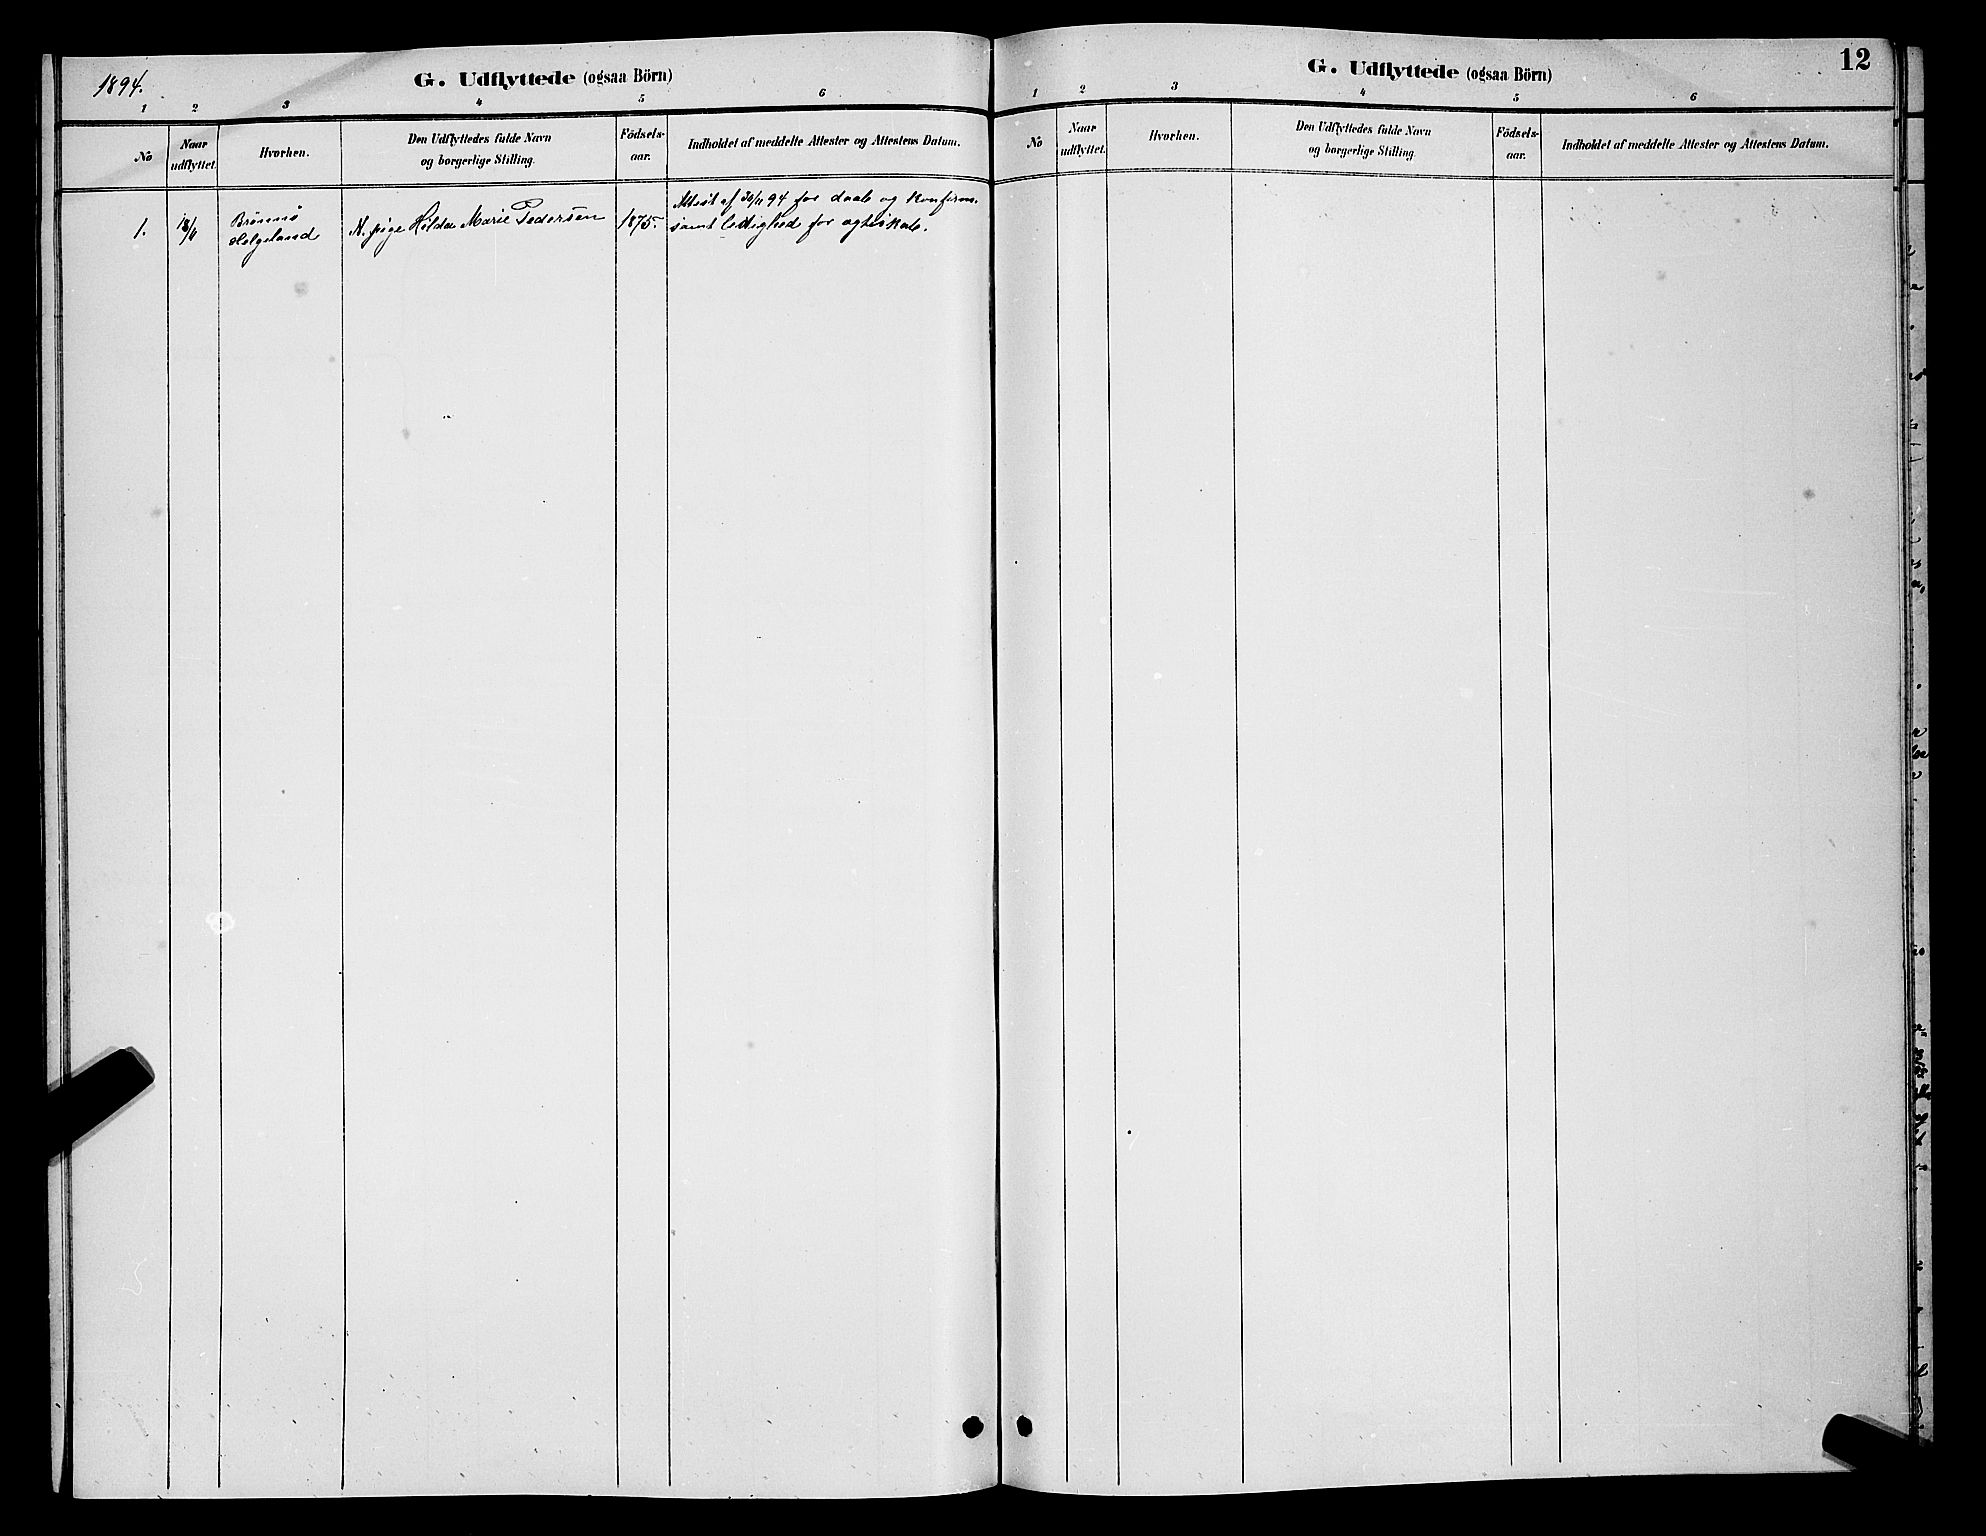 1894.
G. Udflyttede (ogsaa Börn)
1 2 3 4 5 6
No
Naar udflyttet.
Hvorhen.
Den Udflyttedes fulde Navn
og borgerlige Stilling.
Födsels-
aar.
Indholdet af meddelte Attester og Attestens Datum.
1.
Brönnö
Helgeland
N. pige Hilda Marie Pedersen
1875.
Attest af 94 for daab og konfirm.
samt ledighed for ægteskab.
G. Udflyttede (ogsaa Börn)
12
1 2 3 4 5 6
No
Naar
udflyttet.
Hvorhen.
Den Udflyttedes fulde Navn
og borgerlige Stilling.
Födsels-
aar.
Indholdet af meddelte Attester og Attestens Datum.